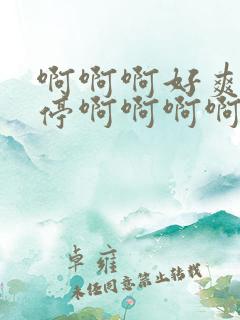 啊啊啊好爽
停啊啊啊啊
卓雍
未经同意禁止转载